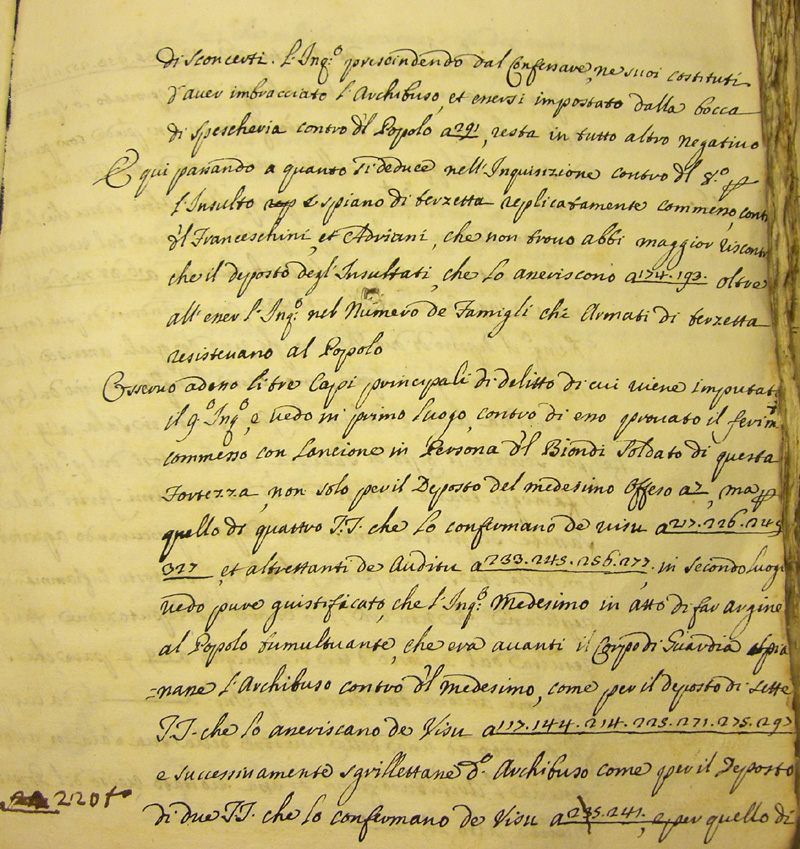 di sconcerti. L'Inq.º prescindendo dal Confessare, ne suoi costituti
d'aver imbracciato l'Archibuso, et essersi impostato dalla bocca
di Spescheria contro d'l Popolo a 291, resta in tutto altro negativo
E qui passando a quanto si deduce nell'Inquisizione contro d'l 8.º p
l'Insulto e spiano di terzetta replicatamente commesso, cont
d'l Franceschini, et Adriani, che non trovo abbi maggior riscont
che il deposto degl'Insultati, che lo asseriscono a 174. 193. oltre
all'esser l'Inq.º nel Numero de Famigli che Armati di terzetta
resistevano al Popolo
Osservo adesso li tre Capi principali di delitto di cui viene imputat
il 9.º Inq.º, e vedo in primo luogo, contro di esso provato il ferim
commesso con Lancione in Persona d'l Biondi Soldato di questa
Fortezza, non solo per il Deposto del medesimo Offeso a 7, ma p
quello di quattro T.T. che lo confermano de visu a 217. 226. 245
327, et altrettanti de Auditu a 233. 245. 256. 277, in secondo luogo
vedo pure giustificato, che l'Inq.º Medesimo in atto di far argine
al Popolo tumultuante, che era avanti il Corpo di Guardia spia
=nasse l'Archibuso contro d'l medesimo, come per il deposto di Sette
T.T. che lo asseriscano de Visu a 117. 144. 214. 225. 271. 275. 297
e successivamente sgrillettasse d.º Archibuso come per il Deposto
220 tº
di due T.T. che lo confermano de Visu a 235. 241., e per quello di